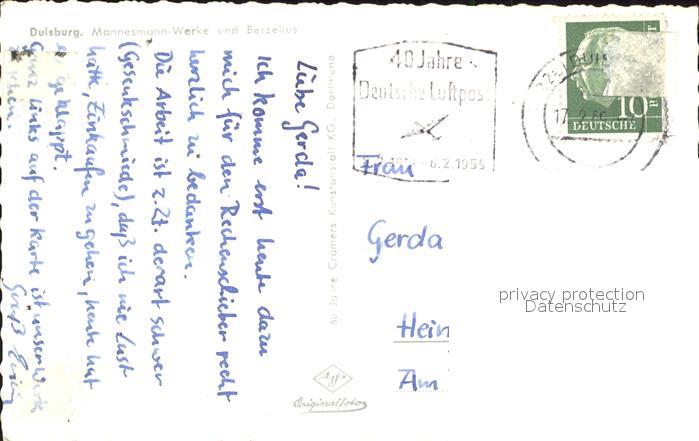 Duisburg. Mannesmann-Werke und Berzelius
Liebe Gerda!
Ich komme erst heute dazu
mich für den Rechenschieber recht
herzlich zu bedanken.
Die Arbeit ist z. Zt. derart schwer
(Gesenkschmiede), daß ich nie Lust
hatte, Einkaufen zu gehen, heute hat
es geklappt.
Ganz links auf der Karte ist unser Werk
Gruß
60 Jahre Cramers Kunstanstalt KG., Dortmund
Agfa
Originalfoto
40 Jahre
Deutsche Luftpost
- 6.2.1959
10 PF
DEUTSCHE
Frau
Gerda
Hein
Am
privacy protection
Datenschutz